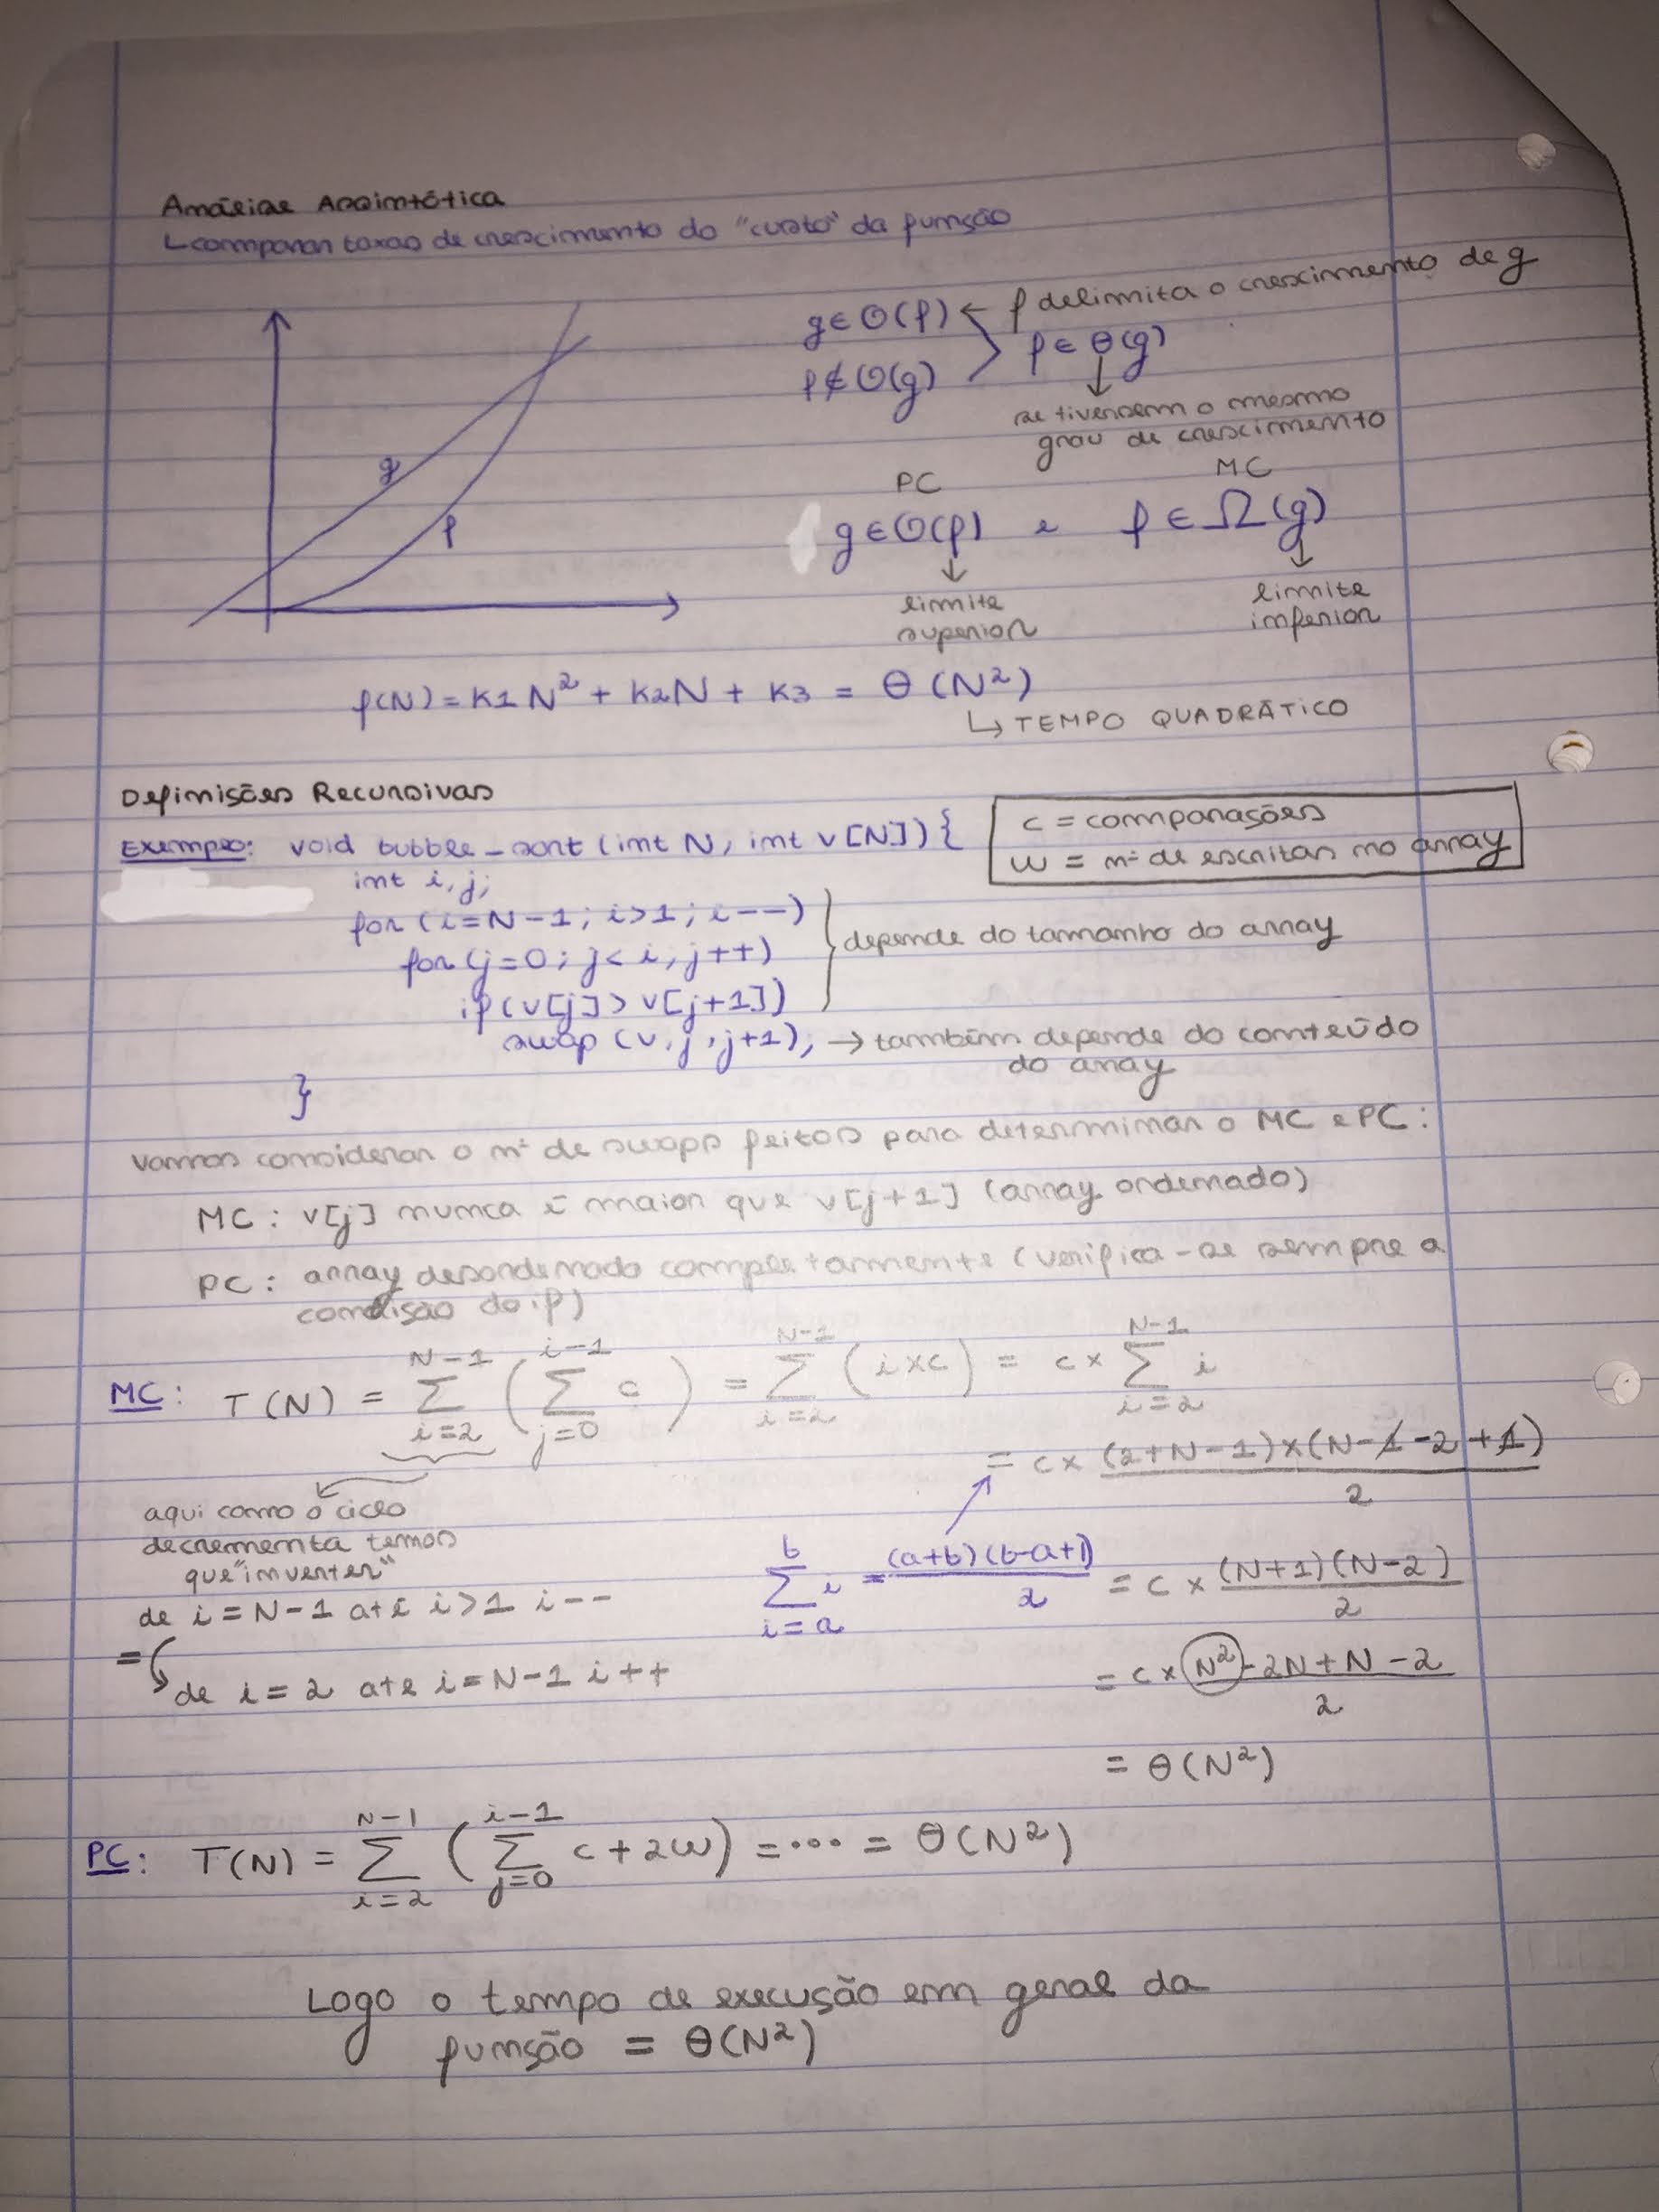 Análise Assimtótica
↳ comparar taxas de crescimento do "custo" da função
g ∈ O(f) ← f delimita o crescimento de g
f ∉ O(g) > f ∈ Θ(g)
↓
se tiverem o mesmo
grau de crescimento
g
f
PC MC
g ∈ O(f) e f ∈ Ω(g)
↓ ↓
limite superior
limite inferior
f(N) = K1 N² + K2N + K3 = Θ(N²)
↳ TEMPO QUADRÁTICO
Definições Recursivas
c = comparações
w = nº de escritas no array
Exemplo: void bubble_sort (int N, int v[N]) {
int i, j;
for (i=N-1; i>1; i--)
for (j=0; j<i; j++)
if (v[j] > v[j+1])
} depende do tamanho do array
swap (v, j, j+1); → também depende do conteúdo
do array
}
Vamos considerar o nº de swaps feitos para determinar o MC e PC:
MC: v[j] nunca é maior que v[j+1] (array ordenado)
PC: array desordenado completamente (verifica-se sempre a
condição do if)
MC: T(N) = ∑_{i=2}^{N-1} (∑_{j=0}^{i-1} c) = ∑_{i=2}^{N-1} (i×c) = c × ∑_{i=2}^{N-1} i
= c × (2+N-1)×(N-1-2+1)/2
aqui como o ciclo
decrementa temos
que "inverter"
de i=N-1 até i>1 i--
=
de i=2 até i=N-1 i++
∑_{i=a}^{b} i = (a+b)(b-a+1)/2
= c × (N+1)(N-2)/2
= c × N²-2N+N-2/2
= Θ(N²)
PC: T(N) = ∑_{i=2}^{N-1} (∑_{j=0}^{i-1} c+2w) = ... = Θ(N²)
Logo o tempo de execução em geral da
função = Θ(N²)